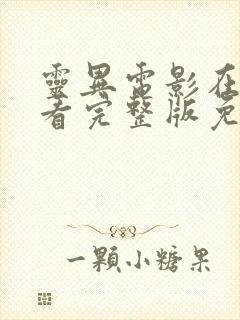 靈異電影在
看完整版免
一顆小糖果